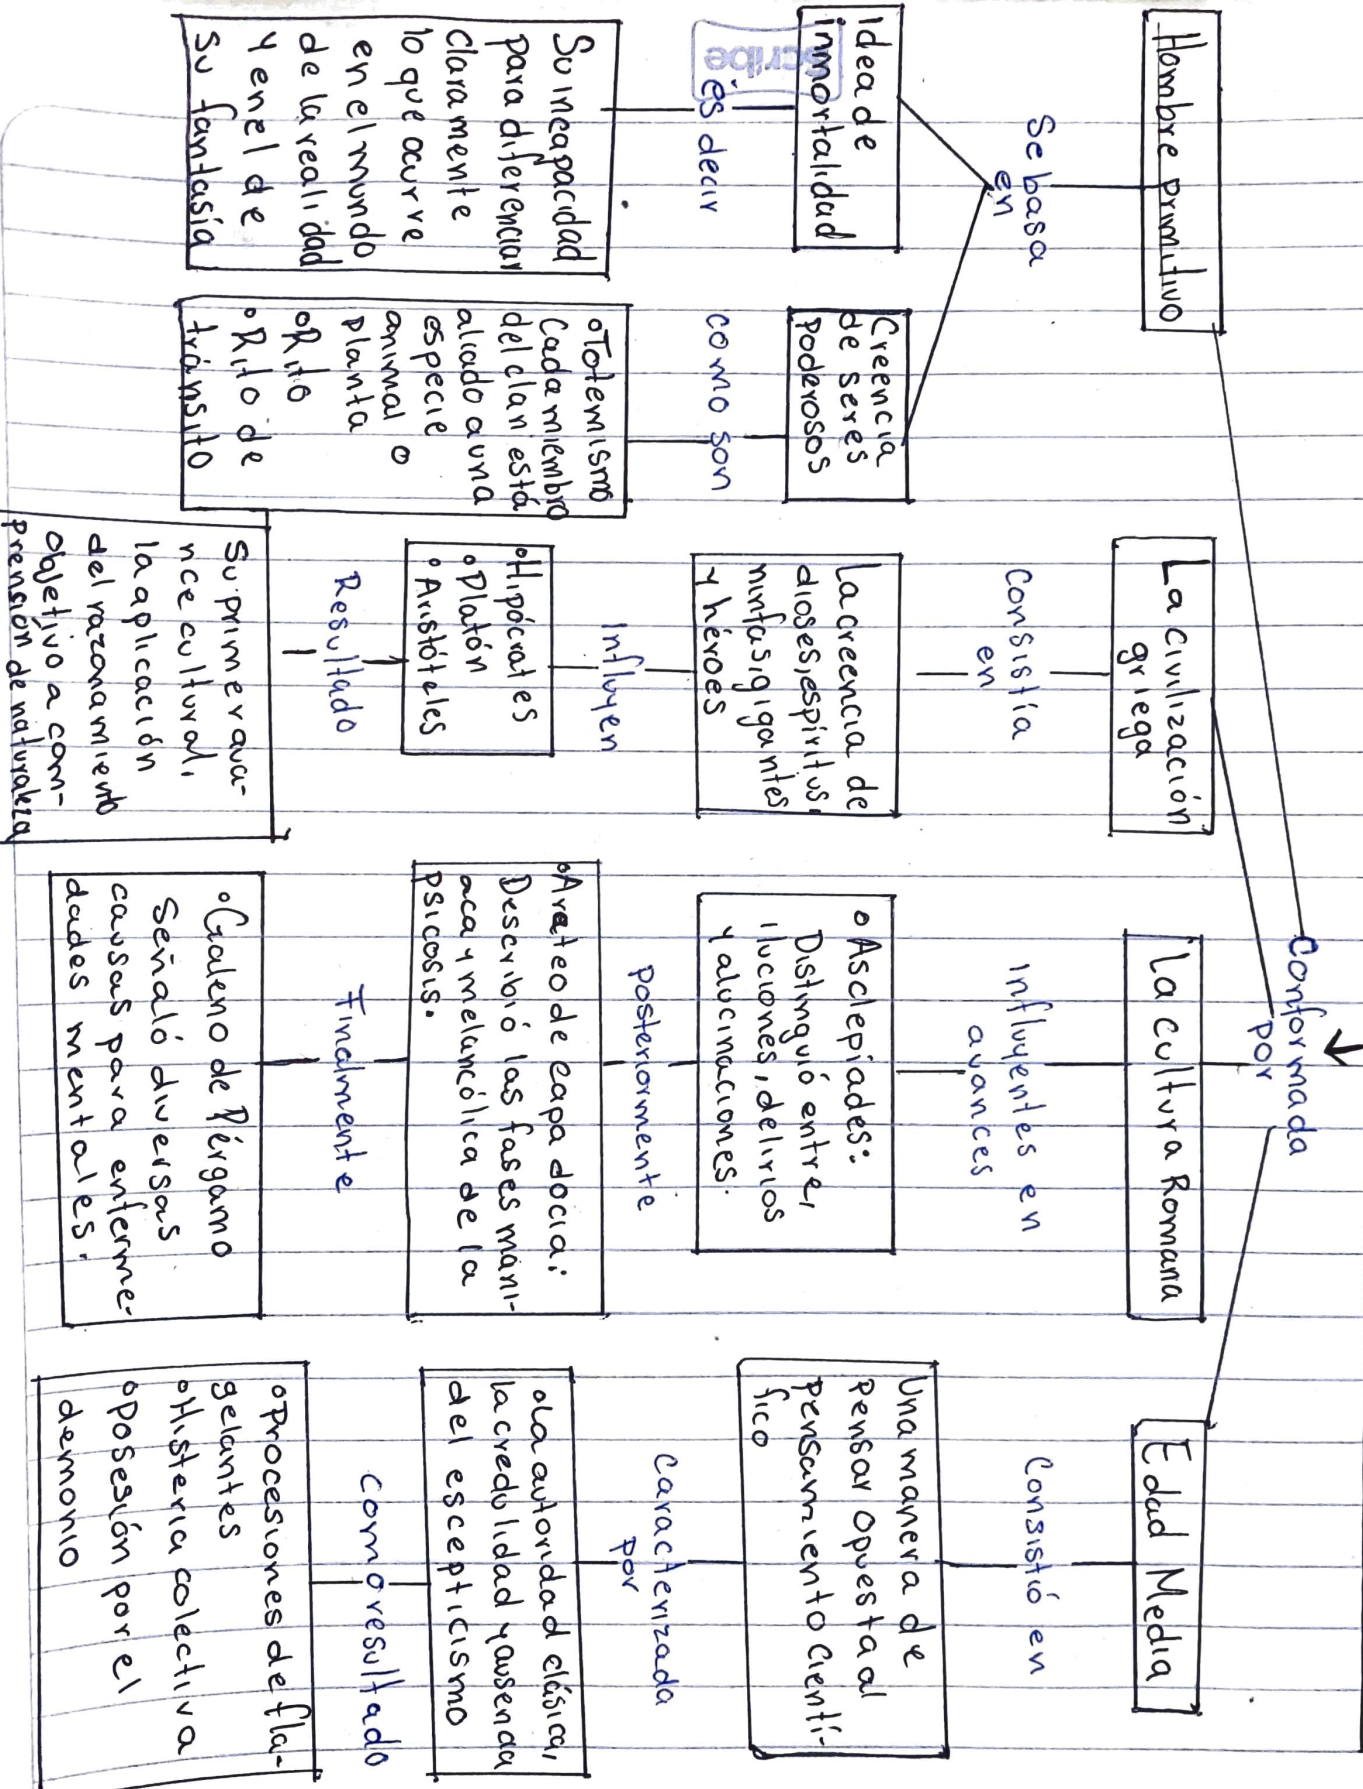 Conformada
por
Hombre primitivo
Se basa
en
Idea de
inmortalidad
es decir
Su incapacidad
para diferenciar
claramente
lo que ocurre
en el mundo
de la realidad
y en el de
su fantasía
Creencia
de seres
poderosos
como son
°Totemismo
Cada miembro
del clan está
aliado a una
especie
animal o
planta
°Rito
°Rito de
tránsito
La civilización
griega
Consistía
en
La creencia de
dioses, espíritus,
ninfas, gigantes
y héroes
Influyen
°Hipócrates
°Platón
°Aristóteles
Resultado
Su primer ava-
nce cultural,
la aplicación
del razonamiento
objetivo a com-
prensión de naturaleza
La cultura Romana
Influyentes en
avances
°Asclepiades:
Distinguió entre,
iluciones, delirios
y alucinaciones.
Posteriormente
°Areteo de capa docia:
Describió las fases maní-
aca y melancólica de la
psicosis.
Finalmente
°Galeno de Pérgamo
Señaló diversas
causas para enferme-
dades mentales.
Edad Media
Consistió en
Una manera de
pensar opuesta al
pensamiento cientí-
fico
Caracterizada
por
°La autoridad clásica,
la credulidad y ausencia
del escepticismo
Como resultado
°Procesiones de fla-
gelantes
°Histeria colectiva
°Posesión por el
demonio
scribe